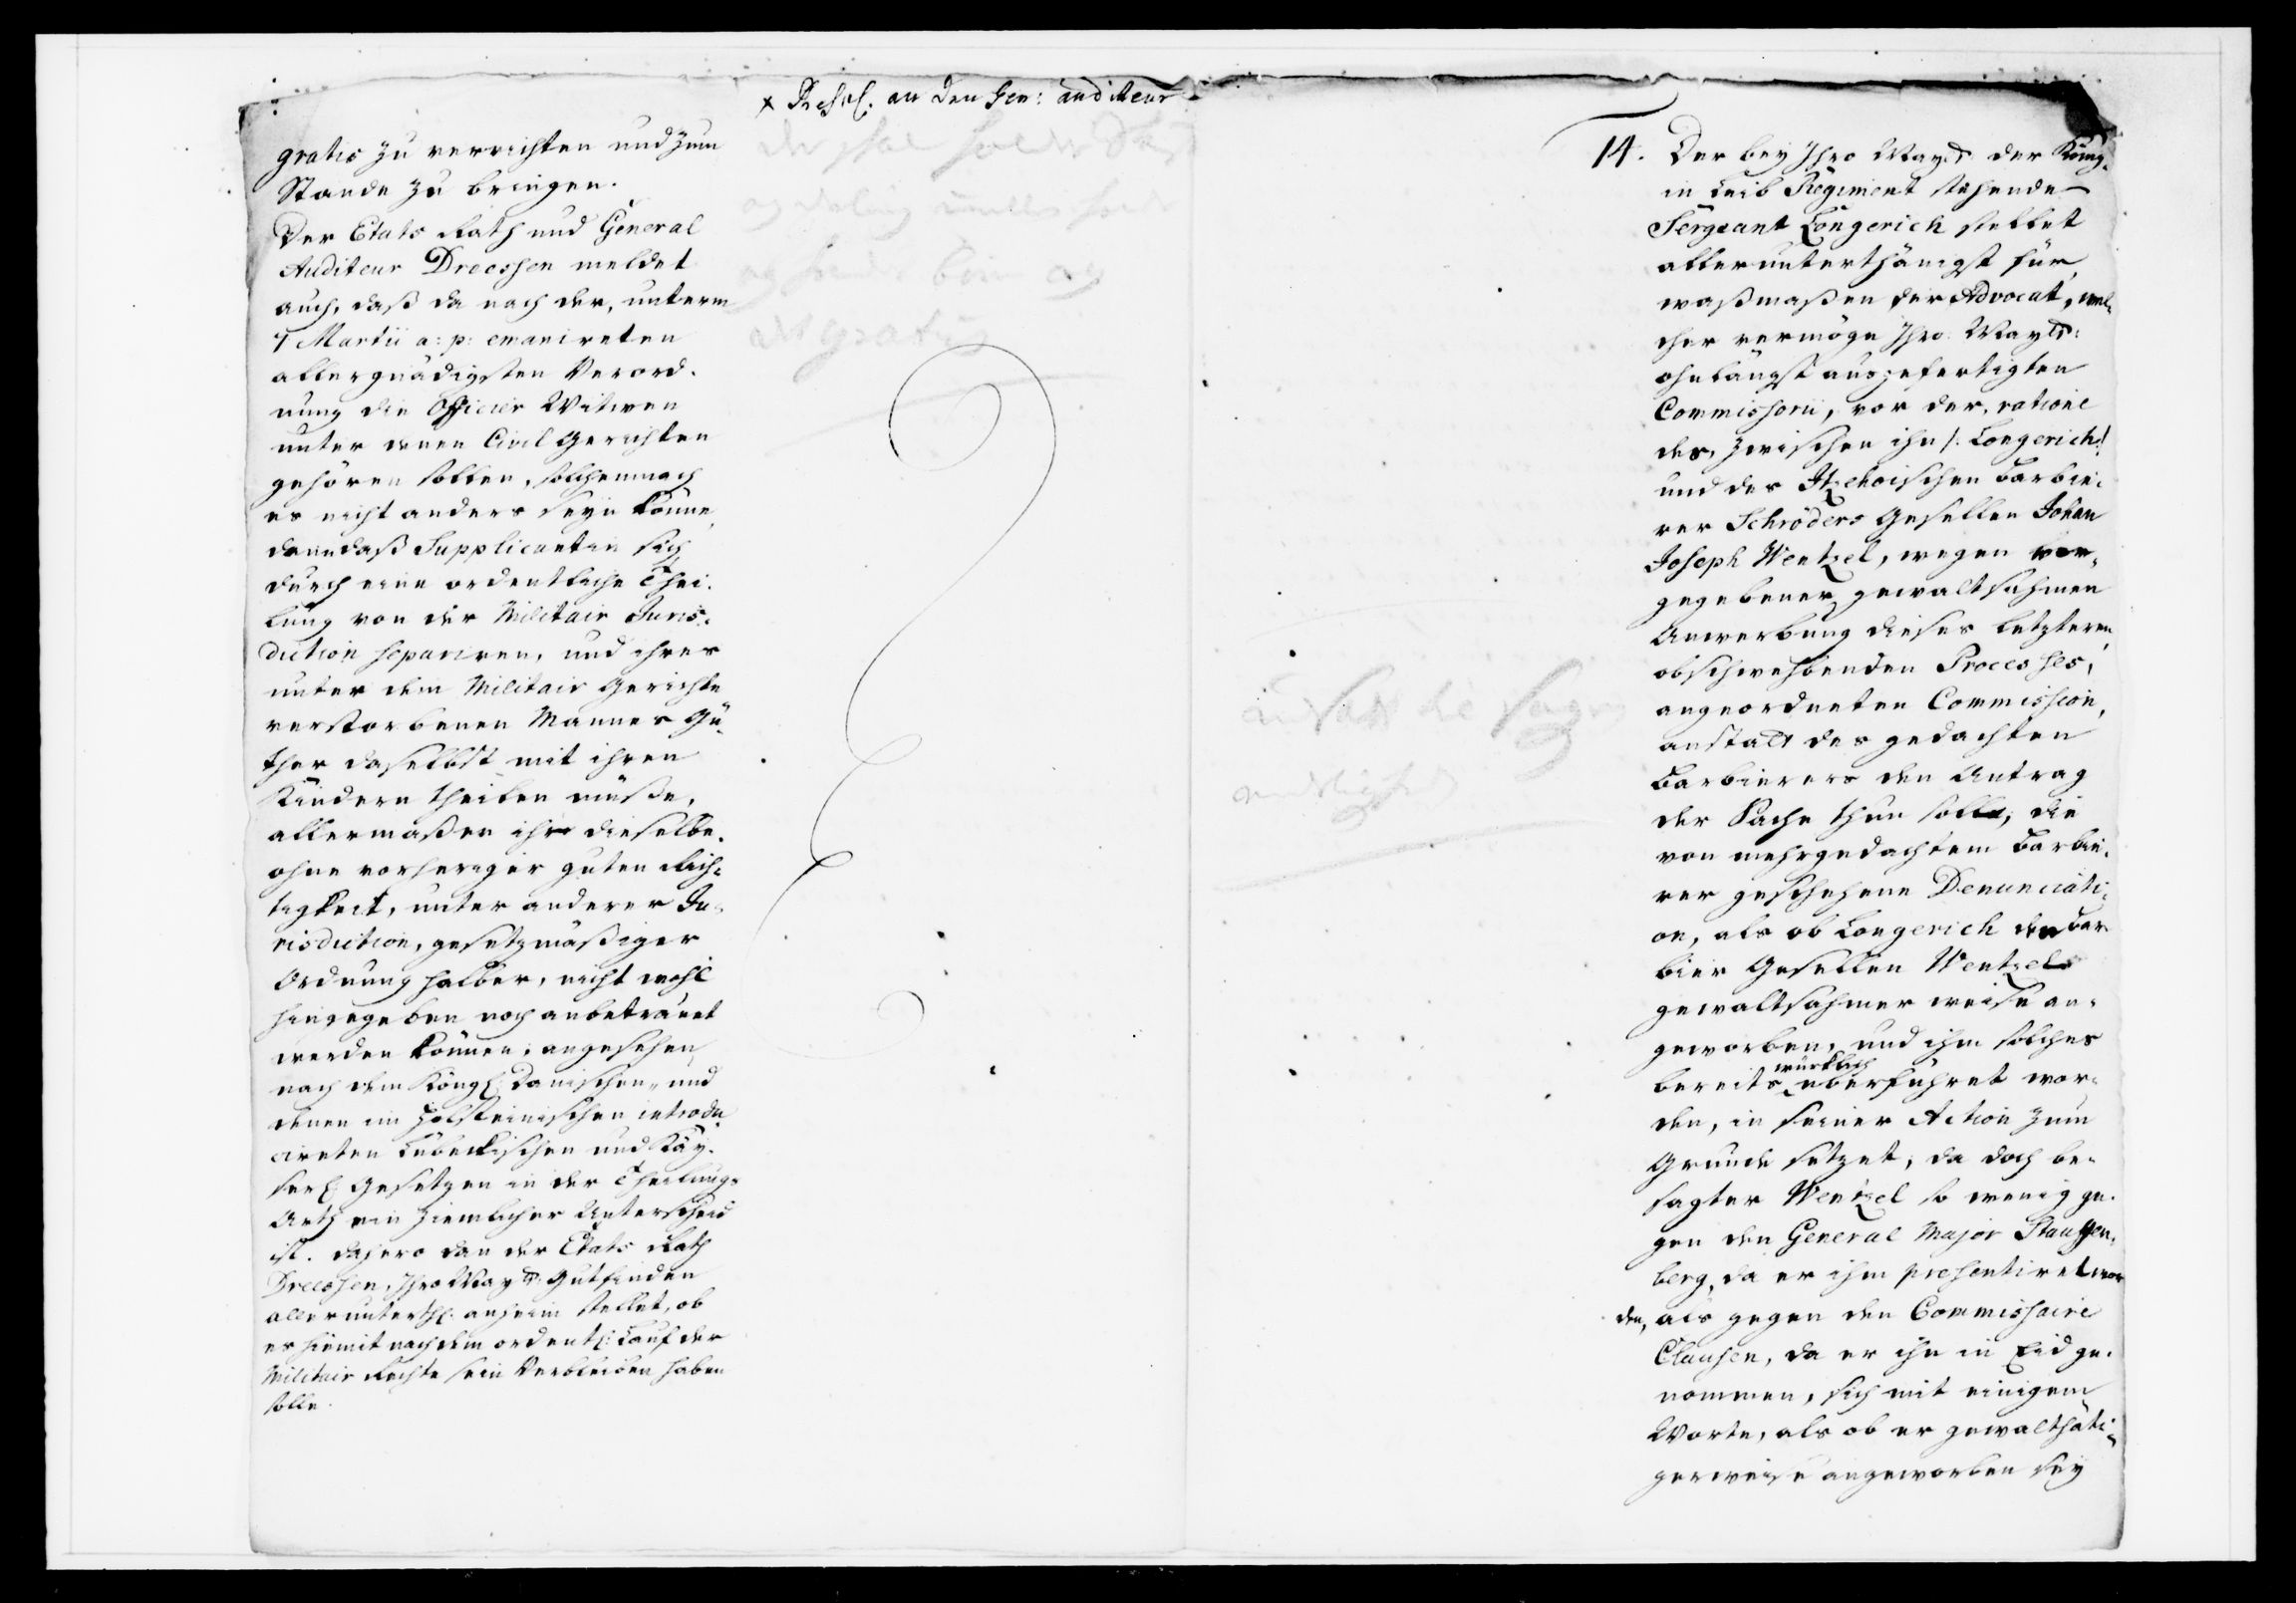 gratis zu verrichten und zum
Stande zu bringen.
Der Etats Rath und General
Auditeur Dreessen meldet
auch, daß da nach der, unterm
7 Martii a: p: emanireten
allergnädigsten Verord-
nung die Officier Witwen
unter denen Civil Gerichten
gehören sollen, solchemnach
es nicht anders seyn könne,
dann daß Supplicantin sich
durch eine ordentliche Thei-
lung von der Militair Juris-
diction separiren, und ihres
unter dem Militair Gerichte
verstorbenen Mannes Gü-
ther daselbst mit ihren
Kindern theilen müße,
allermaßen ihr dieselbe
ohne vorheriger guten Rich-
tigkeit, unter anderer Ju-
risdiction, gesetzmäßiger
Ordnung halber, nicht wohl
hingegeben noch anbetrauet
werden können; angesehen
nach dem Königl: Danischen- und
denen im Holsteinischen introdu-
cireten Lübeckischen und Kay-
serl: Gesetzen in der Theilungs-
Arth ein ziemlicher Unterscheid
ist. Dahero dan der Etats Rath
Dreessen, Ihro Mayts: Gutfinden
allerunterth: anheim stellet, ob
es hiemit nach dem ordentl: Lauf der
Militair Rechte sein Verbleiben haben
solle.
x Rescr. an den Gen: auditeur
og
gratis
14. Der bey Ihro Mayts der König-
in Leib Regiment stehende
Sergeant Longerich stellet
allerunterthänigst für,
waßmaßen der Advocat, wel-
cher vermöge Ihro Mayts:
ohnlängst ausgefertigten
Commissorii, vor der, ratione
des, zwischen ihn /: Longerich :/
und des Itzehoischen Barbie-
rer Schröders Gesellen Johan
Joseph Wentzel, wegen vor-
gegebener gewaltsahmen
Anwerbung dieses letzteren,
obschwebenden Processes,
angeordneten Commission,
anstatt des gedachten
Barbierers den Antrag
der Sache thun solle, die
von mehrgedachtem Barbie-
rer geschehene Denunciati-
on, als ob Longerich den Bar-
bier Gesellen Wentzel
gewaltsahmer weise an-
geworben, und ihm solches
würklich
bereits überführet wor-
den, in seiner Action zum
Grunde setzet, da doch be-
sagter Wentzel so wenig ge-
gen den General Major Stauffen-
berg, da er ihm presentiret wor
den, als gegen den Commissaire
Clausen, da er ihn in Eid ge-
nommen, sich mit einigem
Worte, als ob er gewaltthäti-
gerweise angeworben sey